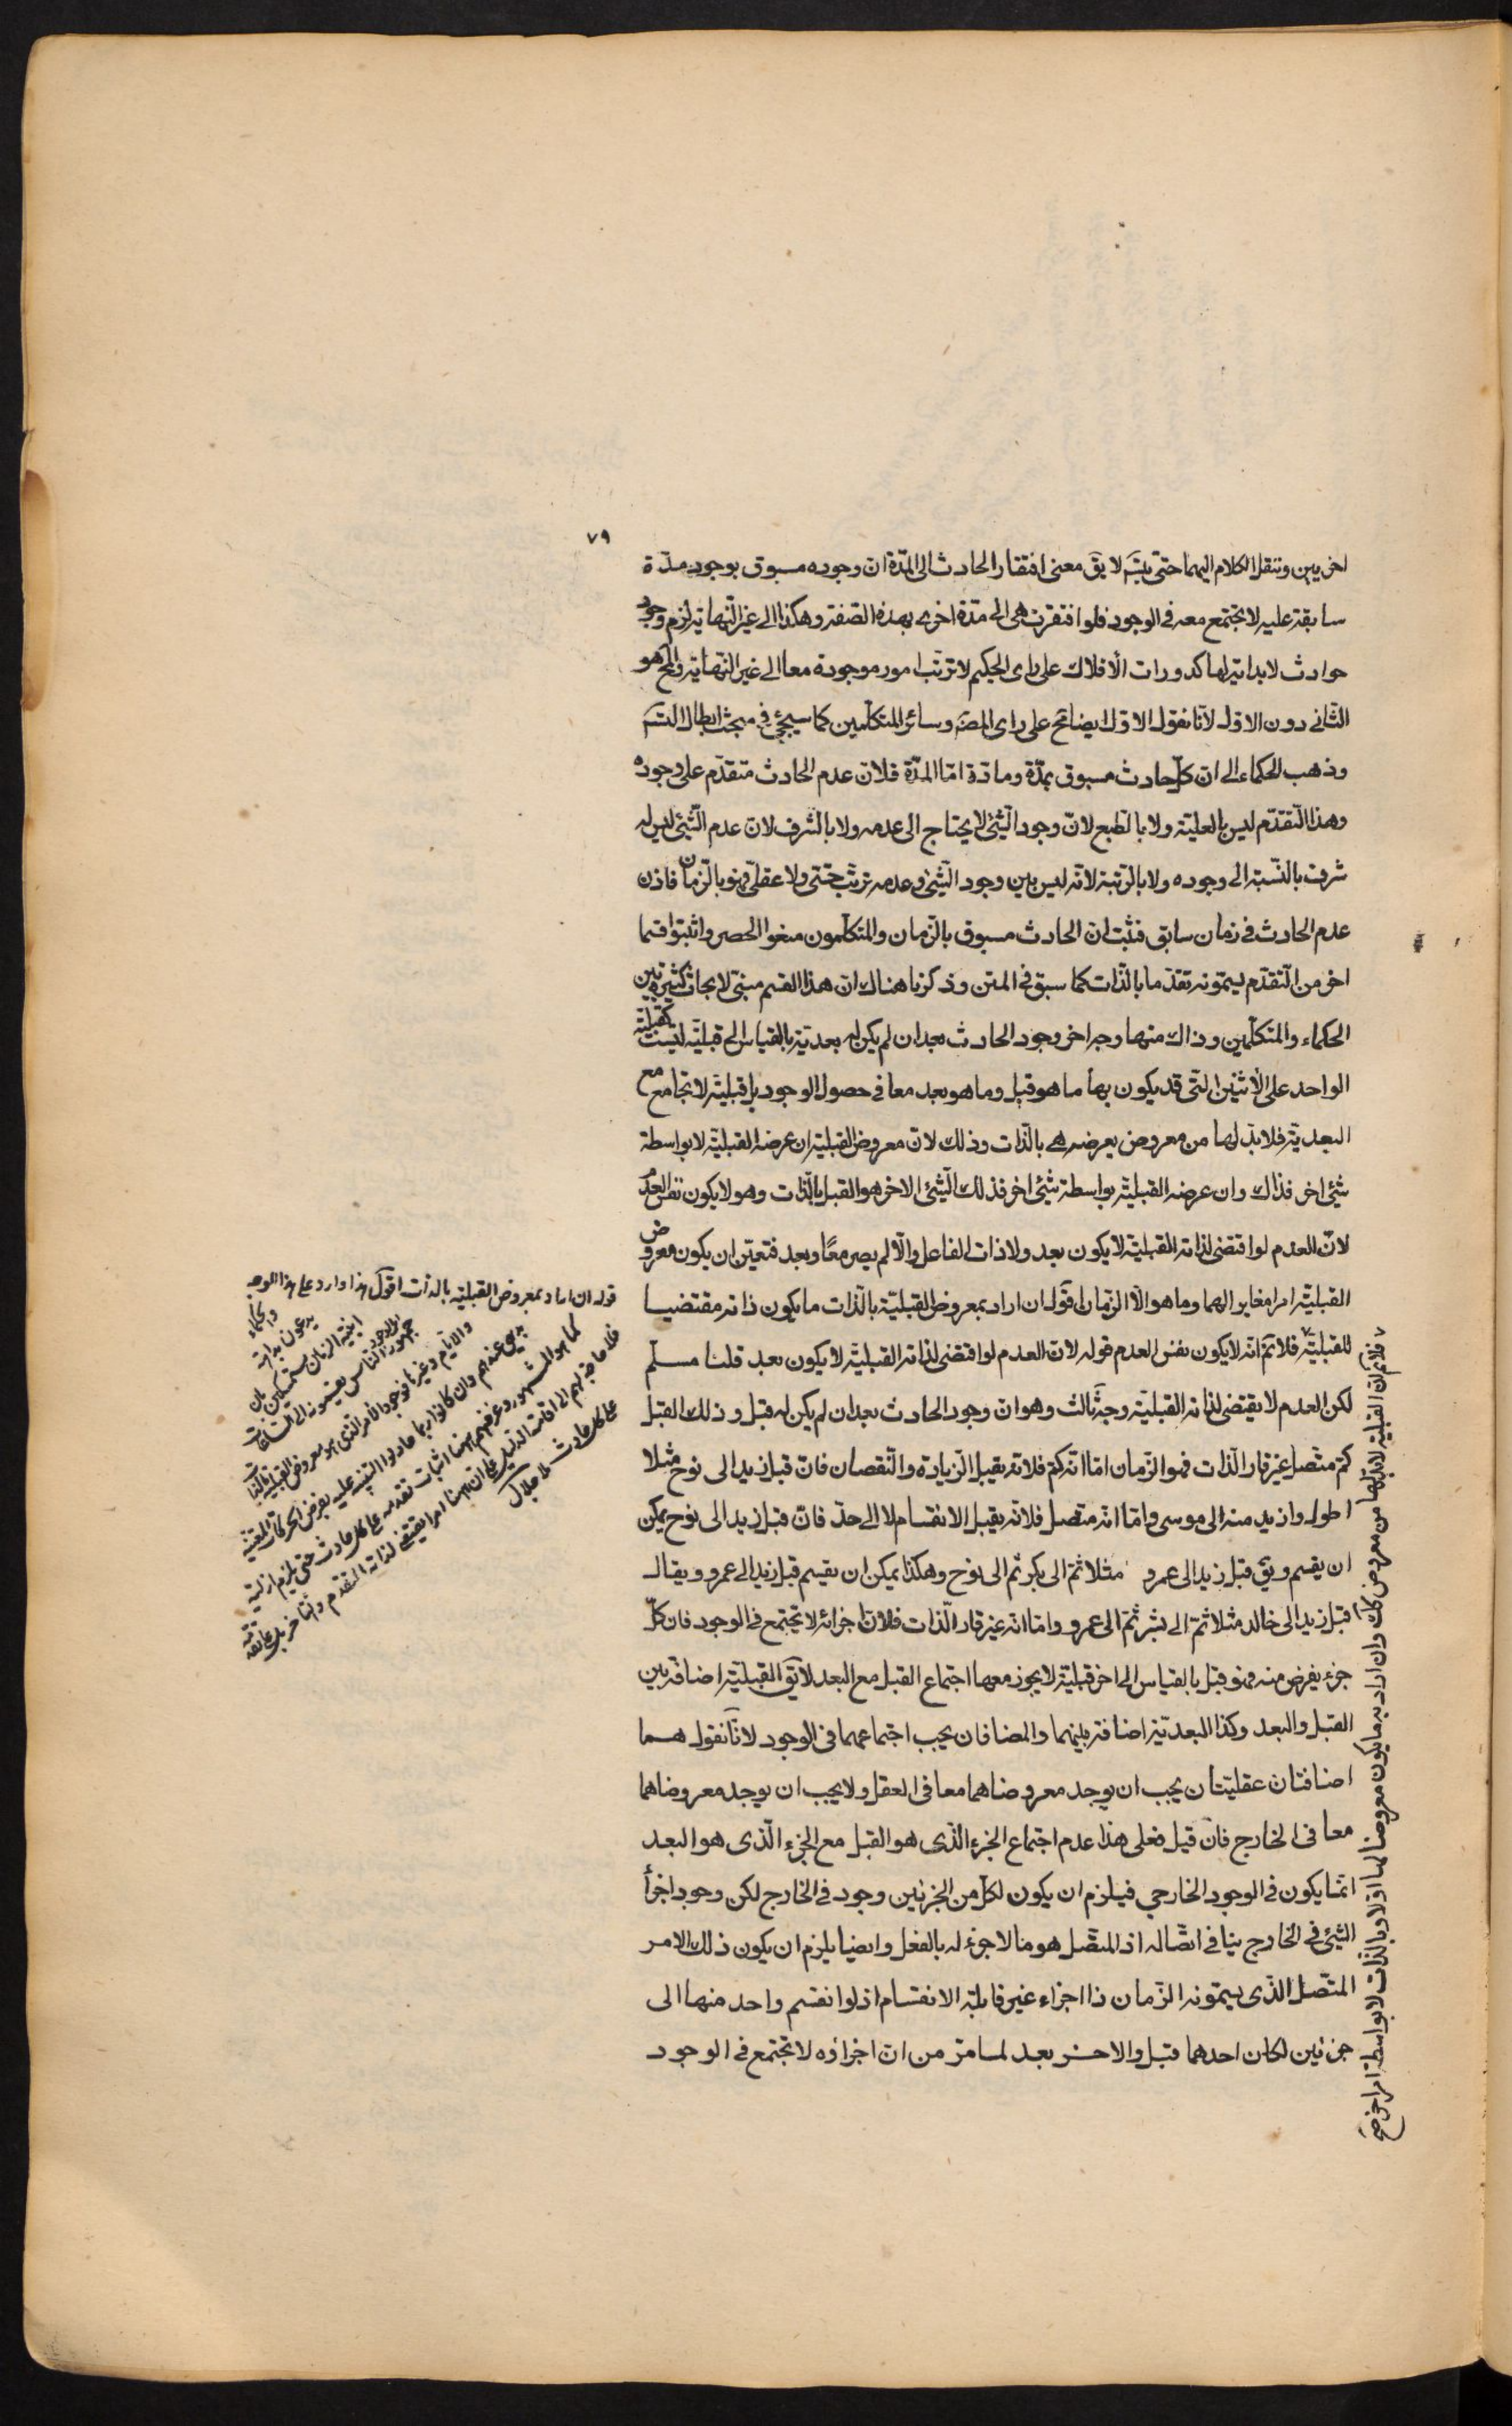 ٧٩
اخريين وننقل الكلام اليهما حتى يتسَ لا يقَ معنى افتقار الحادث الى المدّة ان وجوده مسبوق بوجود مدّة
سابقة عليه لا تجتمع معه فى الوجود فلو افتقرت هى الى مدّة اخرى بهذه الصّفة وهكذا الى غير النّهاية لزم وجود
حوادث لا بداية لها كدورات الافلاك على راى الحكيم لا ترتّب امور موجودة معا الى غير النّهاية والمح هو
الثّانى دون الاوّل لانّا نقول الاوّل ايضا مح على راى المصَ وسائر المتكلّمين كما سيجئ فى مبحث ابطال التسَ
وذهب الحكماء الى ان كلّ حادث مسبوق بمدّة ومادّة امّا المدّة فلانّ عدم الحادث متقدّم على وجوده
وهذا التّقدّم ليس بالعليّة ولا بالطّبع لانّ وجود الشّئ لا يحتاج الى عدمه ولا بالشّرف لانّ عدم الشّئ ليس له
شرف بالنّسبة الى وجوده ولا بالرّتبة لانّه ليس بين وجود الشّئ وعدمه ترتّب حسّى ولا عقلى فهو بالزّمان فاذن
عدم الحادث فى زمان سابق فثبت انّ الحادث مسبوق بالزّمان والمتكلّمون منعوا الحصر واثبتوا قسما
اخر من التّقدّم يسمّونه تقدّما بالذّات كما سبق فى المتن وذكرنا هناك ان هذا القسم مبنى لابحاث كثيرة بين
الحكماء والمتكلّمين وذاك منها وجه اخر وجود الحادث بعد ان لم يكن له بعديّة بالقياس الى قبليّة ليست كقبليّة
الواحد على الاثنين التى قد يكون بها ما هو قبل وما هو بعد معا فى حصول الوجود بل قبليّة لا تجامع مع
البعديّة فلا بدّ لها من معروض يعرضه هى بالذّات وذلك لانّ معروض القبليّة ان عرضه القبليّة لا بواسطة
شئ اخر فذاك وان عرضه القبليّة بواسطة شئ اخر فذلك الشّئ الاخر هو القبل بالذّات وهو لا يكون نفس العدم
لانّ العدم لو اقتضى لذاته القبليّة لا يكون بعد ولا ذات الفاعل والّا لم يصر معًا وبعد فتعيّن ان يكون معروض
القبليّة امرا مغايرا لهما وما هو الّا الزّمان اقول ان اراد بمعروض القبليّة بالذّات ما يكون ذاته مقتضيا
للقبليّة فلا نمَ انّه لا يكون نفس العدم قوله لانّ العدم لو اقتضى لذاته القبليّة لا يكون بعد قلنا مسلّم
لكن العدم لا يقتضى لذاته القبليّة وجهَ ثالث وهو انّ وجود الحادث بعد ان لم يكن له قبل وذلك القبل
كمّ متّصل غير قارّ الذّات فهو الزّمان امّا انّه كمّ فلانّه يقبل الزّيادة والنّقصان فانّ قبل زيد الى نوح مثلا
اطول وازيد منه الى موسى وامّا انّه متّصل فلانّه يقبل الانقسام لا الى حدّ فانّ قبل زيد الى نوح يمكن
ان يقسم ويقَ قبل زيد الى عمرو مثلا ثمّ الى بكر ثم الى نوح وهكذا يمكن ان يقسم قبل زيد الى عمرو ويقال
قبل زيد الى خالد مثلا ثمّ الى بشر ثمّ الى عمرو وامّا انّه غير قارّ الذّات فلانّ اجزائه لا تجتمع فى الوجود فان كلّ
جزء يفرض منه فهو قبل بالقياس الى اخر قبليّة لا يجوز معها اجتماع القبل مع البعد لا يقَ القبليّة اضافة بين
القبل والبعد وكذا البعديّة اضافة بينهما والمضافان يجب اجتماعهما فى الوجود لانّا نقول هما
اضافتان عقليّتان يجب ان يوجد معروضاهما معا فى العقل ولا يجب ان يوجد معروضاهما
معا فى الخارج فان قيل فعلى هذا عدم اجتماع الجزء الّذى هو القبل مع الجزء الّذى هو البعد
انّما يكون فى الوجود الخارجى فيلزم ان يكون لكلّ من الجزئين وجود فى الخارج لكن وجود اجزأ
الشّئ فى الخارج ينافى اتّصاله اذ المتّصل هو ما لا جزء له بالفعل وايضا يلزم ان يكون ذلك الامر
المتّصل الّذى يسمّونه الزّمان ذا اجزاء غير قابلة الانقسام اذ لو انقسم واحد منها الى
جزئين لكان احدهما قبل والاخر بعد لما مرّ من ان اجزاؤه لا تجتمع فى الوجود
فلا نم انّ القبليّة لا بدّ لها من معروض كك وان اراد به ما يكون معروضا لها اوّلا وبالذّات لا بواسطة امر اخر صح
قوله ان اراد بمعروض القبليّة بالذّات اقول هذا وارد على هذا الوجه
والحكماء
يدعون بداهة
انيّة الزمان متمسكين بان
جمهور الناس يقسمونه الى الساعات
والايام وغيرها فوجود الامر الذى هو معروض القبليّة بالذات
بديهى عندهم وان كانوا ربما حاولوا التنبيه عليه بفرض الحركات المعينة
كما هو المشهور وغرضهم ههنا اثبات تقدمه على كل حادث حتى يلزم ازليته
فلا حاجة بهم الى اقامة الدليل على ان ههنا امرا يقتضى لذاته التقدم والتاخر
على كل حادث ملا جلال